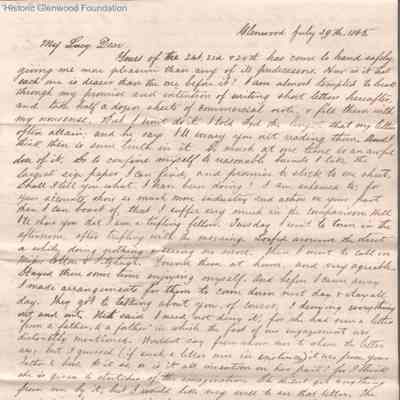 Historic Glenwood Foundation
Glenwood July 29th, 1865
My Lucy Dear
Yours of the 21st, 22d & 24th has come to hand safely
giving me more pleasure than any of its predecessors. How is it that
each one is dearer than the one before it? I am almost tempted to break
through my promise and intention of writing short letters hereafter,
and take half a dozen sheets of commercial note, & fill them with
my nonsense. But I wont do it. I told that my letter
often attain, and he says I'll weary you out reading them. Dont
think there is some truth in it. So much at one time is an awful
dose of it. So to confine myself to reasonable bounds I take the
largest sized paper I can find, and promise to stick to one sheet.
Shall I tell you what I have been doing? I am ashamed to; for
your accounts show so much more industry and action on your part
than I can boast of that I suffer very much in the comparison. Well
I'll show you what I am a trifling fellow. Tuesday I went to town in the
afternoon after trifling with the morning. Loafed around the street
a while doing nothing & telling no news. Then I went to call on
Misses & Fitzhugh. Found them at home, and very agreeable.
Stayed there some time enjoying myself. And before I came away
I made arrangements for them to come down next day & stay all
day. They got to talking about you, of course, I denying everything
out and out. said I need not deny it, for she had seen a letter
from a father, to a father in which the fact of our engagement was
distinctly mentioned. Wouldnt say from whom nor to whom the letter
was, but I guessed (if such a letter were in existence) it was from your
father to him. Is it so, or is it all invention on her part? for I think
she is given to stretches of the imagination. She didnt get anything
from me by it, but I would like very well to see that letter. The